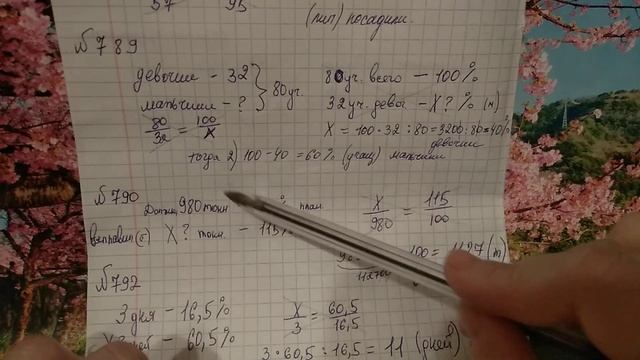 57 95
(лип) посадили.
№789
девочки - 32
мальчики - ?
} 80 уч.
80 уч. всего - 100%
32 уч. девоч - X? % (м)
80/32 = 100/X
X = 100·32 : 80 = 3200 : 80 = 40%
девочки
тогда 2) 100 - 40 = 60% (учащ) мальчики
№790
980 тонн % план
X/980 = 115/100
X? тонн. - 115%
100 = 1127 (т)
№792
3 дня - 16,5%
X/3 = 60,5/16,5
- 60,5%
3·60,5 : 16,5 = 11 (дней)